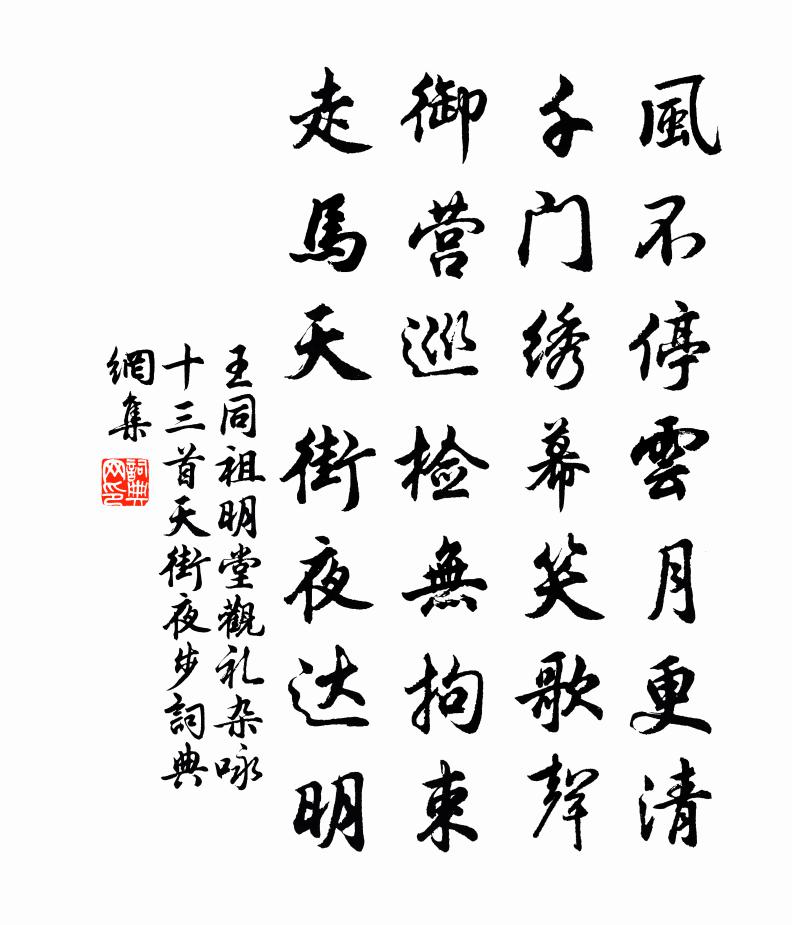 風不停雲月更清
千门绣幕笑歌聲
御营巡检無拘束
走馬天街夜达明
王同祖明堂觀礼杂咏
十三首天街夜步詞典
網集
詞典
网印